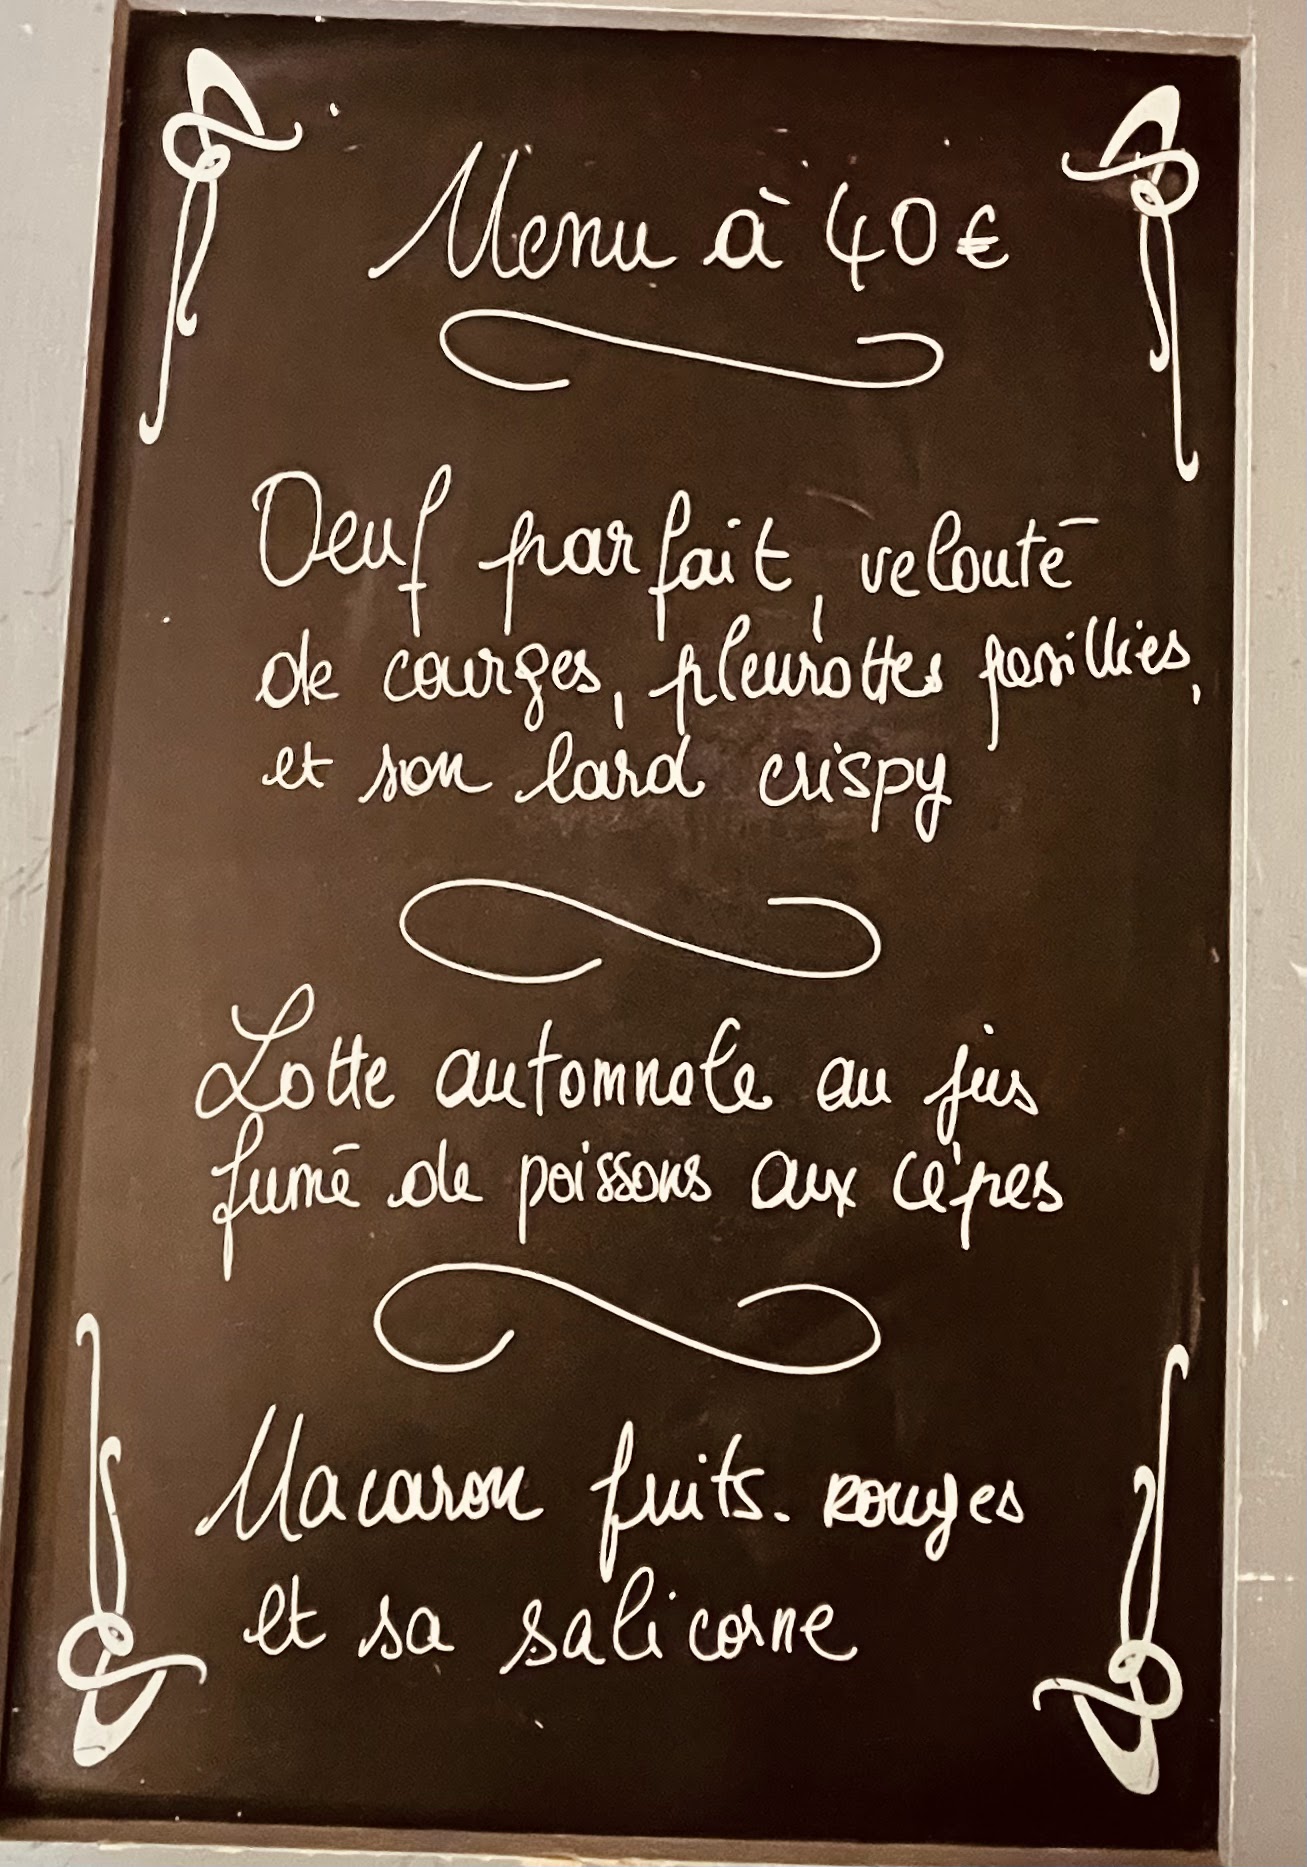 Menu à 40€
Oeuf parfait, velouté
de courges, pleurottes persillées,
et son lard crispy
Lotte automnale au jus
fumé de poissons aux cèpes
Macaron fruits-rouges
et sa salicorne